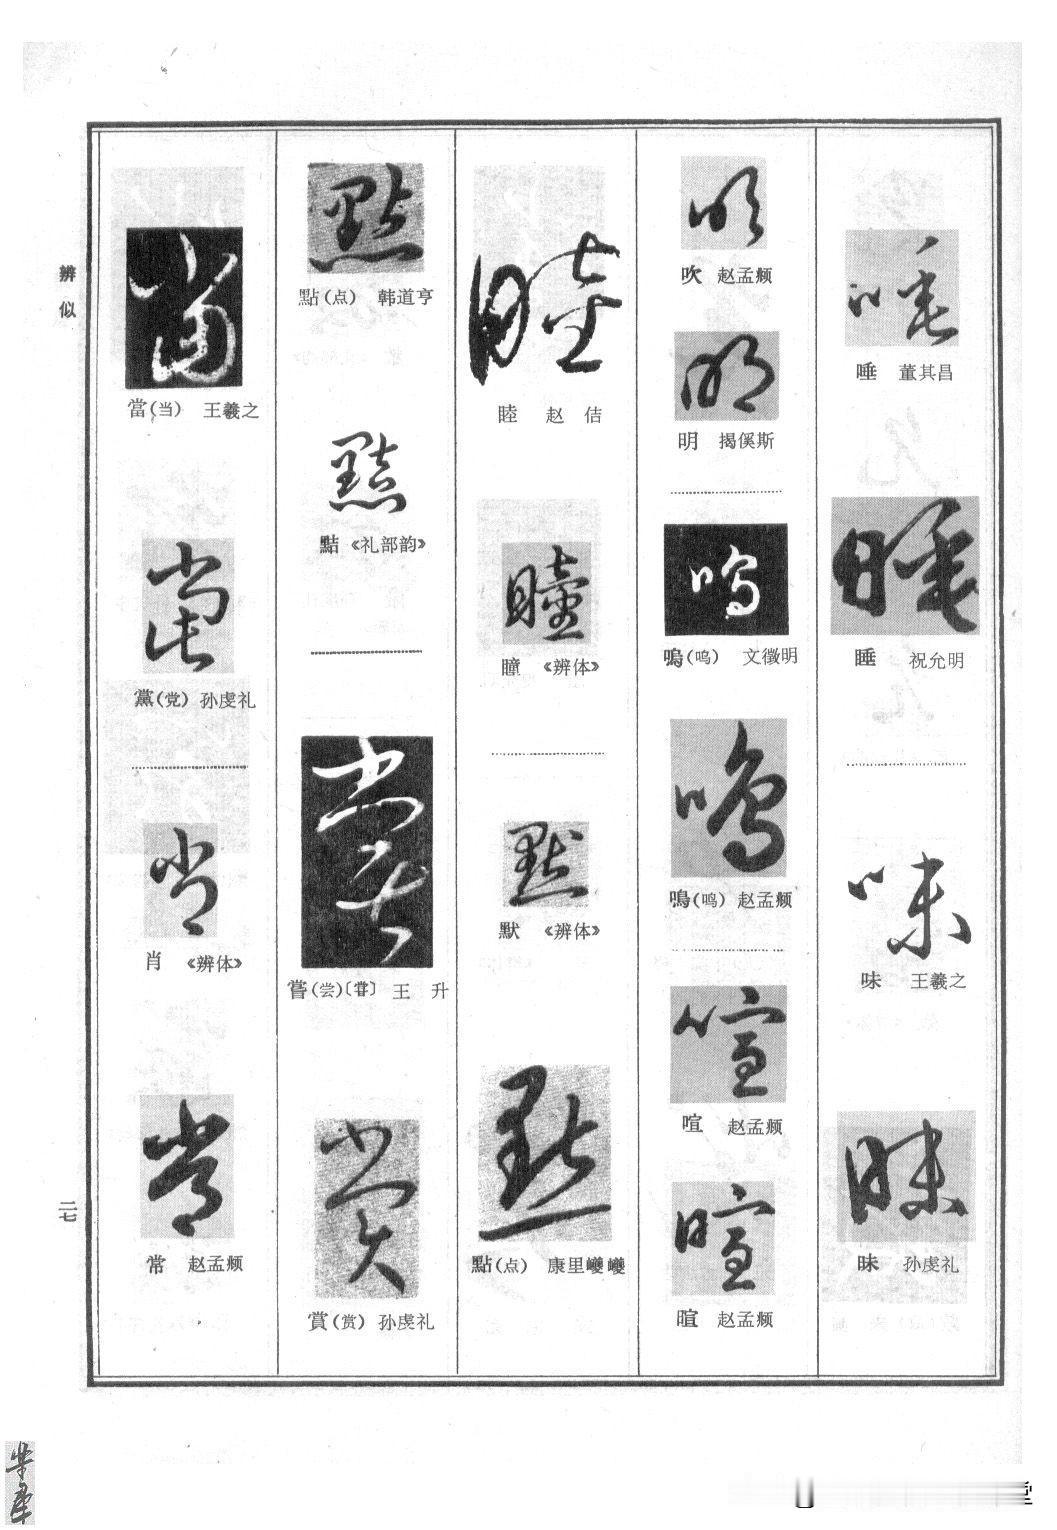 唾 董其昌
睡 祝允明
味 王羲之
昧 孙虔礼
吹 赵孟頫
明 揭傒斯
鳴(鸣) 文徵明
鳴(鸣) 赵孟頫
喧 赵孟頫
暄 赵孟頫
睦 赵佶
瞳 《辨体》
默 《辨体》
點(点) 康里巎巎
點(点) 韩道亨
黠 《礼部韵》
嘗(尝)〔甞〕 王升
賞(赏) 孙虔礼
當(当) 王羲之
黨(党) 孙虔礼
肖 《辨体》
常 赵孟頫
辨似
二七